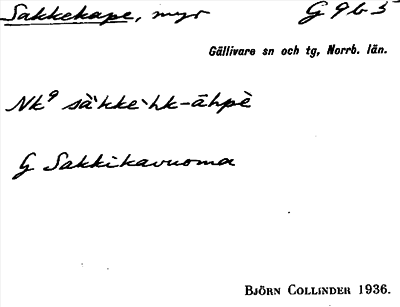 Sakkekape, myr G 9 b 5
Gällivare sn och tg, Norrb. län.
Nk⁹ sà̀ˈkkeˋhk-āhpè
G Sakkikavuoma
BJÖRN COLLINDER 1936.